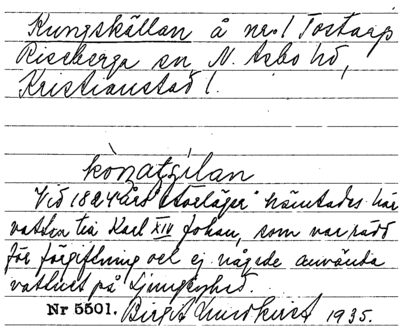 Kungskällan å nr 1 Tostarp
Riseberga sn N. Åsbo hd,
Kristianstad l.
kònatɕälan
Vid 1824 års "Storläger" hämtades här
vatten till Karl XIV Johan, som var rädd
för förgiftning och ej vågade använda
vattnet på Ljungbyhed.
Nr 5501. Birgit Lundkvist 1935.